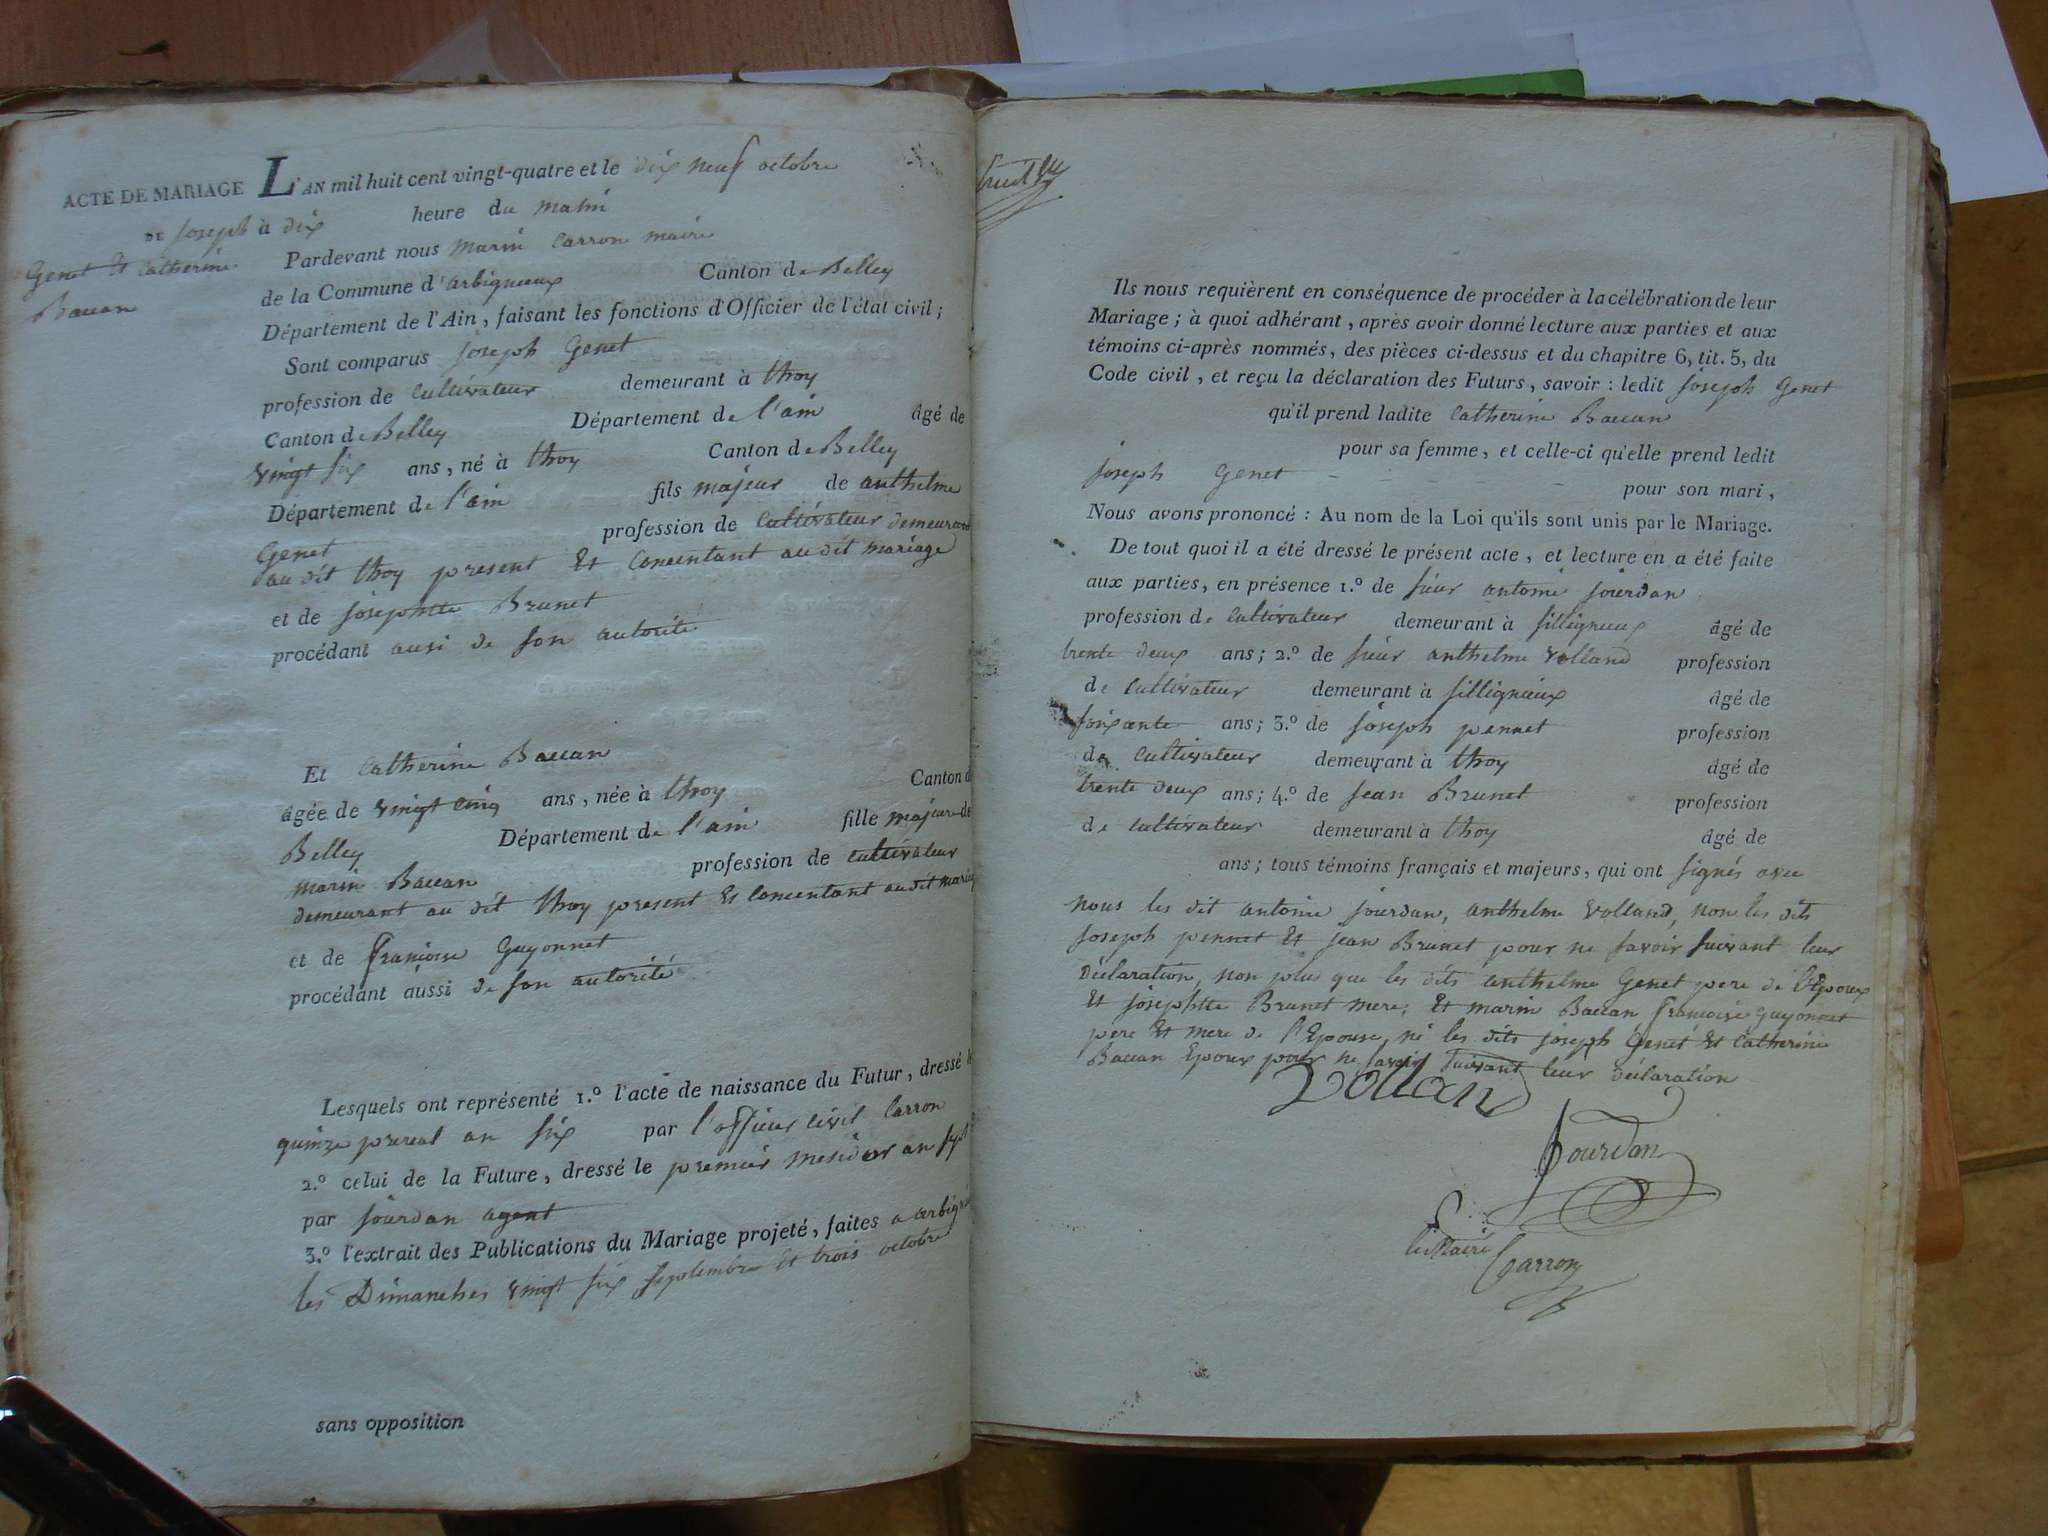 ACTE DE MARIAGE L'AN mil huit cent vingt-quatre et le dix neuf octobre
DE joseph à dix heure du matin
Genet Et Catherine
Baccan
Pardevant nous marin Carron maire
de la Commune d'arbignieux Canton de Belley
Département de l'Ain, faisant les fonctions d'Officier de l'état civil;
Sont comparus joseph Genet
profession de Cultivateur demeurant à thoy
Canton de Belley Département de l'ain âgé de
vingt six ans, né à thoy Canton de Belley
Département de l'ain fils majeur de anthelme
Genet profession de Cultivateur demeurant
au dit thoy present Et Concentant au dit mariage
et de josephtte Brunet
procédant ausi de son autorité
Et Catherine Baccan
âgée de vingt cinq ans, née à thoy Canton d
Belley Département de l'ain fille majeure de
marin Baccan profession de cultivateur
demeurant au dit thoy present Et Concentant au dit mariag
et de françoise Guyonnet
procédant aussi de son autorité
Lesquels ont représenté 1.º l'acte de naissance du Futur, dressé le
quinze prereal an six par l'officier civil Carron
2.º celui de la Future, dressé le premier mesidor an sept
par jourdan agent
3.º l'extrait des Publications du Mariage projeté, faites a arbigni
les Dimanches vingt six septembre Et trois octobre
sans opposition
Ils nous requièrent en conséquence de procéder à la célébration de leur
Mariage; à quoi adhérant, après avoir donné lecture aux parties et aux
témoins ci-après nommés, des pièces ci-dessus et du chapitre 6, tit. 5, du
Code civil, et reçu la déclaration des Futurs, savoir: ledit joseph Genet
qu'il prend ladite Catherine Baccan
pour sa femme, et celle-ci qu'elle prend ledit
joseph Genet pour son mari,
Nous avons prononcé: Au nom de la Loi qu'ils sont unis par le Mariage.
De tout quoi il a été dressé le présent acte, et lecture en a été faite
aux parties, en présence 1.º de sieur antoine jourdan
profession de Cultivateur demeurant à sillignieux âgé de
trente deux ans; 2.º de sieur anthelme volland profession
de Cultivateur demeurant à sillignieux âgé de
soixante ans; 3.º de joseph pennet profession
de Cultivateur demeurant à thoy âgé de
trente deux ans; 4.º de jean Brunet profession
de Cultivateur demeurant à thoy âgé de
ans; tous témoins français et majeurs, qui ont signés avec
nous les dit antoine jourdan, anthelme volland, non les dits
joseph pennet Et jean Brunet pour ne savoir suivant leur
Déclaration, non plus que les dits anthelme Genet pere de l'Epoux
Et josephtte Brunet mere, Et marin Baccan françoise guyonnet
père Et mere de l'Epouse, ni les dits joseph Genet Et Catherine
Baccan Epoux pour ne savoir suivant leur déclaration
Vollan
Jourdan
le Maire Carron